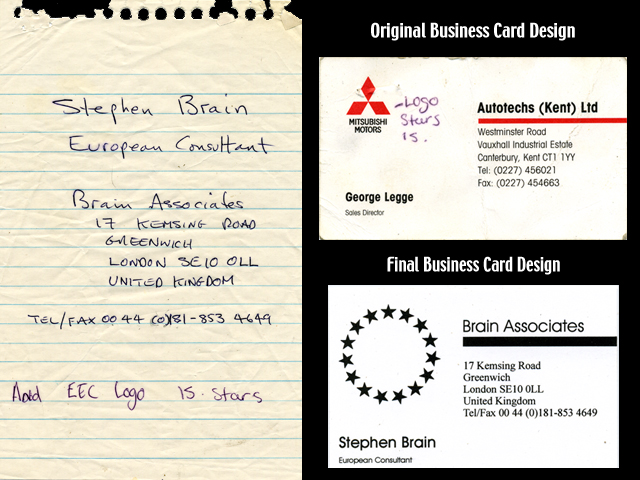 Stephen Brain
European Consultant
Brain Associates
17 KEMSING ROAD
GREENWICH
LONDON SE10 0LL
UNITED KINGDOM
TEL/FAX 00 44 (0)181-853 4649
Add EEC Logo 15. stars
Original Business Card Design
MITSUBISHI
MOTORS
-LOGO
Stars
15.
Autotechs (Kent) Ltd
Westminster Road
Vauxhall Industrial Estate
Canterbury, Kent CT1 1YY
Tel: (0227) 456021
Fax: (0227) 454663
George Legge
Sales Director
Final Business Card Design
Brain Associates
17 Kemsing Road
Greenwich
London SE10 0LL
United Kingdom
Tel/Fax 00 44 (0)181-853 4649
Stephen Brain
European Consultant